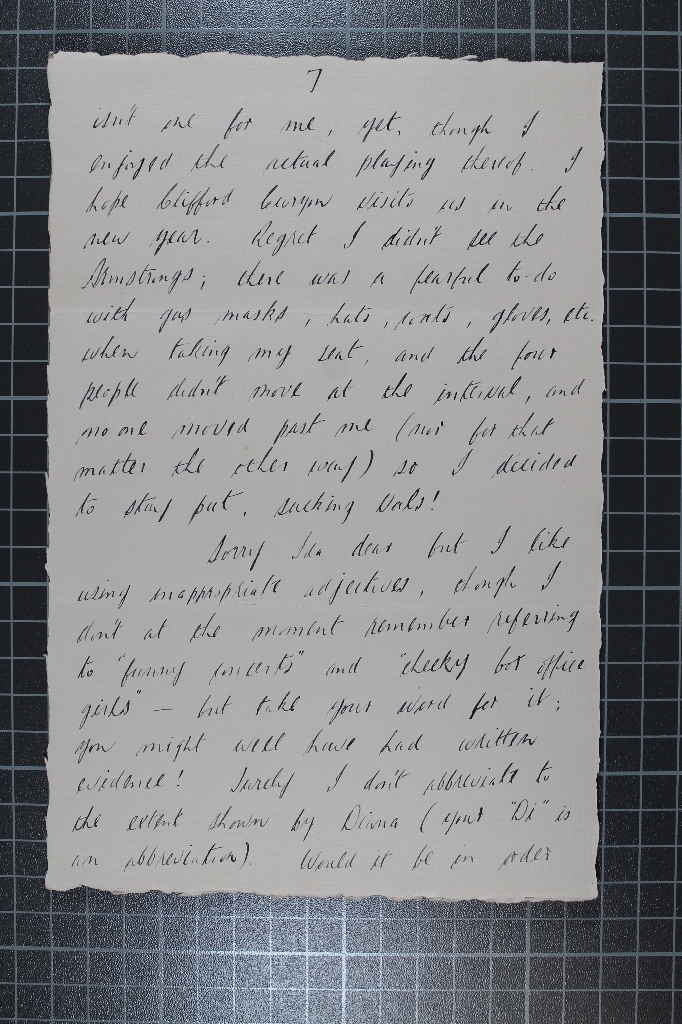 7
isn't one for me, yet, though I
enjoyed the actual playing thereof. I
hope Clifford Curzon visits us in the
new year. Regret I didn't see the
Armstrongs; there was a fearful to-do
with gas masks, hats, coats, gloves, etc.
when taking my seat, and the four
people didn't move at the interval, and
no one moved past me (nor for that
matter the other way) so I decided
to stay put, sucking Vals!
Sorry Ida dear but I like
using inappropriate adjectives, though I
don't at the moment remember referring
to "funny concerts" and "cheeky box office
girls" — but take your word for it;
you might well have had written
evidence! Surely I don't abbreviate to
the extent shown by Diana (your "Di" is
an abbreviation). Would it be in order